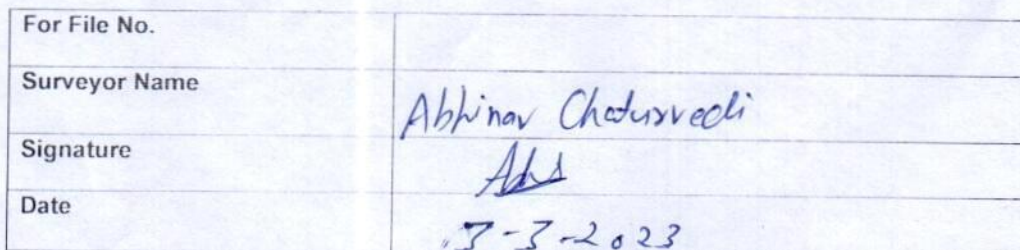 For File No.
Surveyor Name
Abhinav Chaturvedi
Signature
Date
3-3-2023